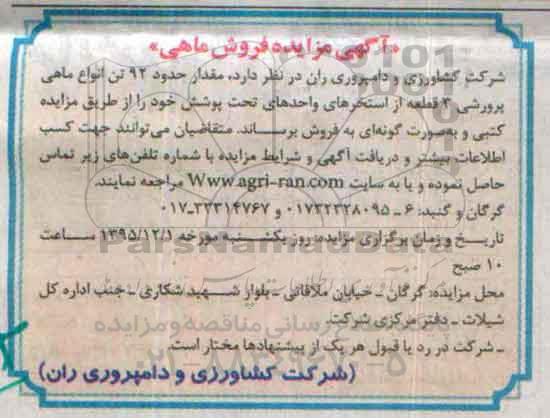 «آگهی مزایده فروش ماهی»
شرکت کشاورزی و دامپروری ران در نظر دارد، مقدار حدود ۹۲ تن انواع ماهی
پرورشی ۳ قطعه از استخرهای واحدهای تحت پوشش خود را از طریق مزایده
کتبی و بهصورت گونه‌ای به فروش برساند. متقاضیان می‌توانند جهت کسب
اطلاعات بیشتر و دریافت آگهی و شرایط مزایده با شماره تلفن‌های زیر تماس
حاصل نموده و یا به سایت Www.agri-ran.com مراجعه نمایند.
گرگان و گنبد: ۶ ـ ۰۱۷۳۲۳۲۸۰۹۵ و ۳۳۳۱۴۷۶۷-۰۱۷
تاریخ و زمان برگزاری مزایده: روز یکشنبه مورخه ۱۳۹۵/۱۲/۱ ساعت
۱۰ صبح
محل مزایده: گرگان ـ خیابان ملاقاتی ـ بلوار شهید شکاری ـ جنب اداره کل
شیلات ـ دفتر مرکزی شرکت.
ـ شرکت در رد یا قبول هر یک از پیشنهادها مختار است.
(شرکت کشاورزی و دامپروری ران)
ParsNamadData